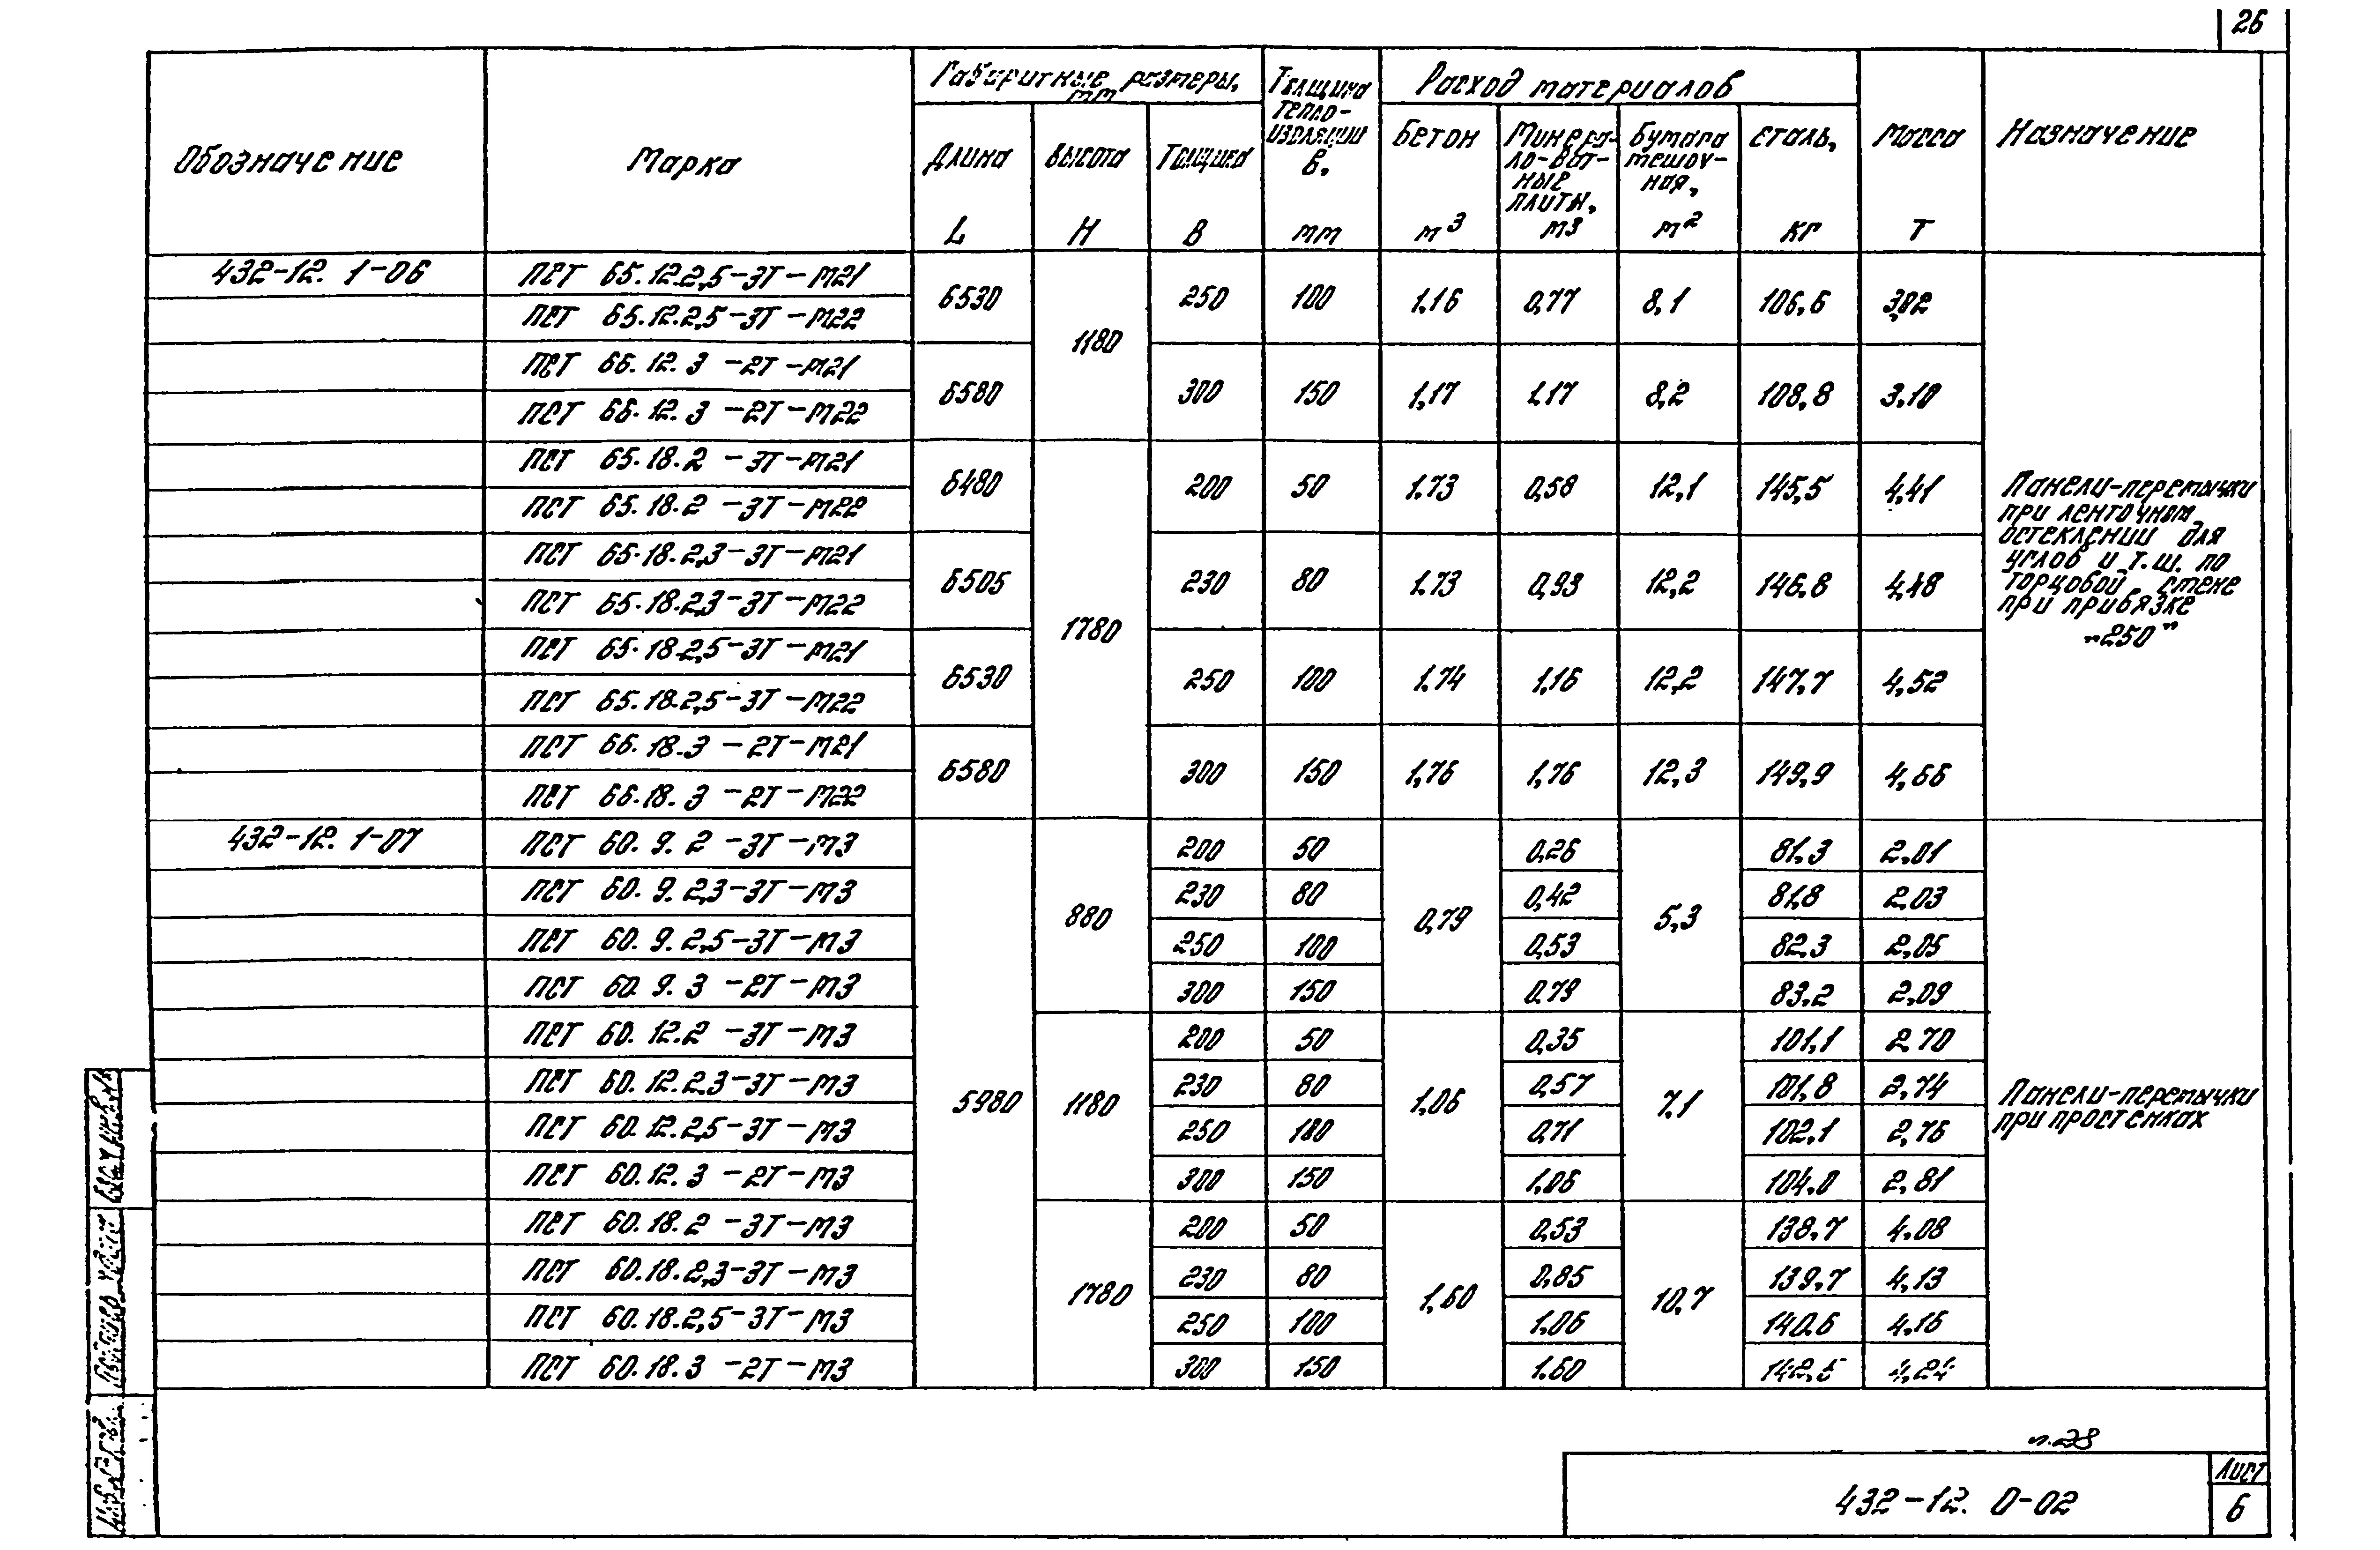 26
Обозначение
Марка
Габаритные размеры, мм
Длина L
Высота H
Толщина B
Толщина тепло-изоляции в, мм
Расход материалов
Бетон м³
Минера-ло-ват-ные плиты, м3
Бумага мешоч-ная, м²
сталь, кг
Масса т
Назначение
432-12. 1-06 ПСТ 65.12.2,5-3Т-М21 6530 1180 250 100 1.16 0,77 8,1 106,6 3,02
ПСТ 65.12.2,5-3Т-М22
ПСТ 66.12.3 -2Т-М21 6580 300 150 1,17 1.17 8,2 108,8 3.10
ПСТ 66.12.3 -2Т-М22
ПСТ 65.18.2 -3Т-М21 6480 1780 200 50 1.73 0,58 12,1 145,5 4,41
ПСТ 65.18.2 -3Т-М22
ПСТ 65.18.2,3-3Т-М21 6505 230 80 1.73 0,93 12,2 146.8 4,48
ПСТ 65.18.2,3-3Т-М22
ПСТ 65.18.2,5-3Т-М21 6530 250 100 1.74 1,16 12,2 147,7 4,52
ПСТ 65.18.2,5-3Т-М22
ПСТ 66.18.3 -2Т-М21 6580 300 150 1,76 1,76 12,3 149,9 4,66
ПСТ 66.18.3 -2Т-М22
Панели-перемычки
при ленточном
остеклении для
углов и т.ш. по
торцовой стене
при привязке
„250"
432-12. 1-07 ПСТ 60. 9. 2 -3Т-М3 5980 880 200 50 0,79 0,26 5,3 81,3 2.01
ПСТ 60. 9. 2,3-3Т-М3 230 80 0,42 81,8 2,03
ПСТ 60. 9. 2,5-3Т-М3 250 100 0,53 82.3 2,05
ПСТ 60. 9. 3 -2Т-М3 300 150 0.79 83.2 2,09
ПСТ 60. 12.2 -3Т-М3 1180 200 50 1,06 0,35 7,1 101,1 2.70
ПСТ 60. 12.2,3-3Т-М3 230 80 0,57 101,8 2,74
ПСТ 60.12.2,5-3Т-М3 250 100 0,71 102,1 2,76
ПСТ 60.12.3 -2Т-М3 300 150 1.06 104.0 2,81
ПСТ 60.18.2 -3Т-М3 1780 200 50 1,60 0,53 10,7 138,7 4.08
ПСТ 60.18.2,3-3Т-М3 230 80 0,85 139,7 4,13
ПСТ 60.18.2,5-3Т-М3 250 100 1.06 140.6 4.16
ПСТ 60.18.3 -2Т-М3 300 150 1.60 142,5 4,24
Панели-перемычки
при простенках
432-12. 0-02
Лист
6